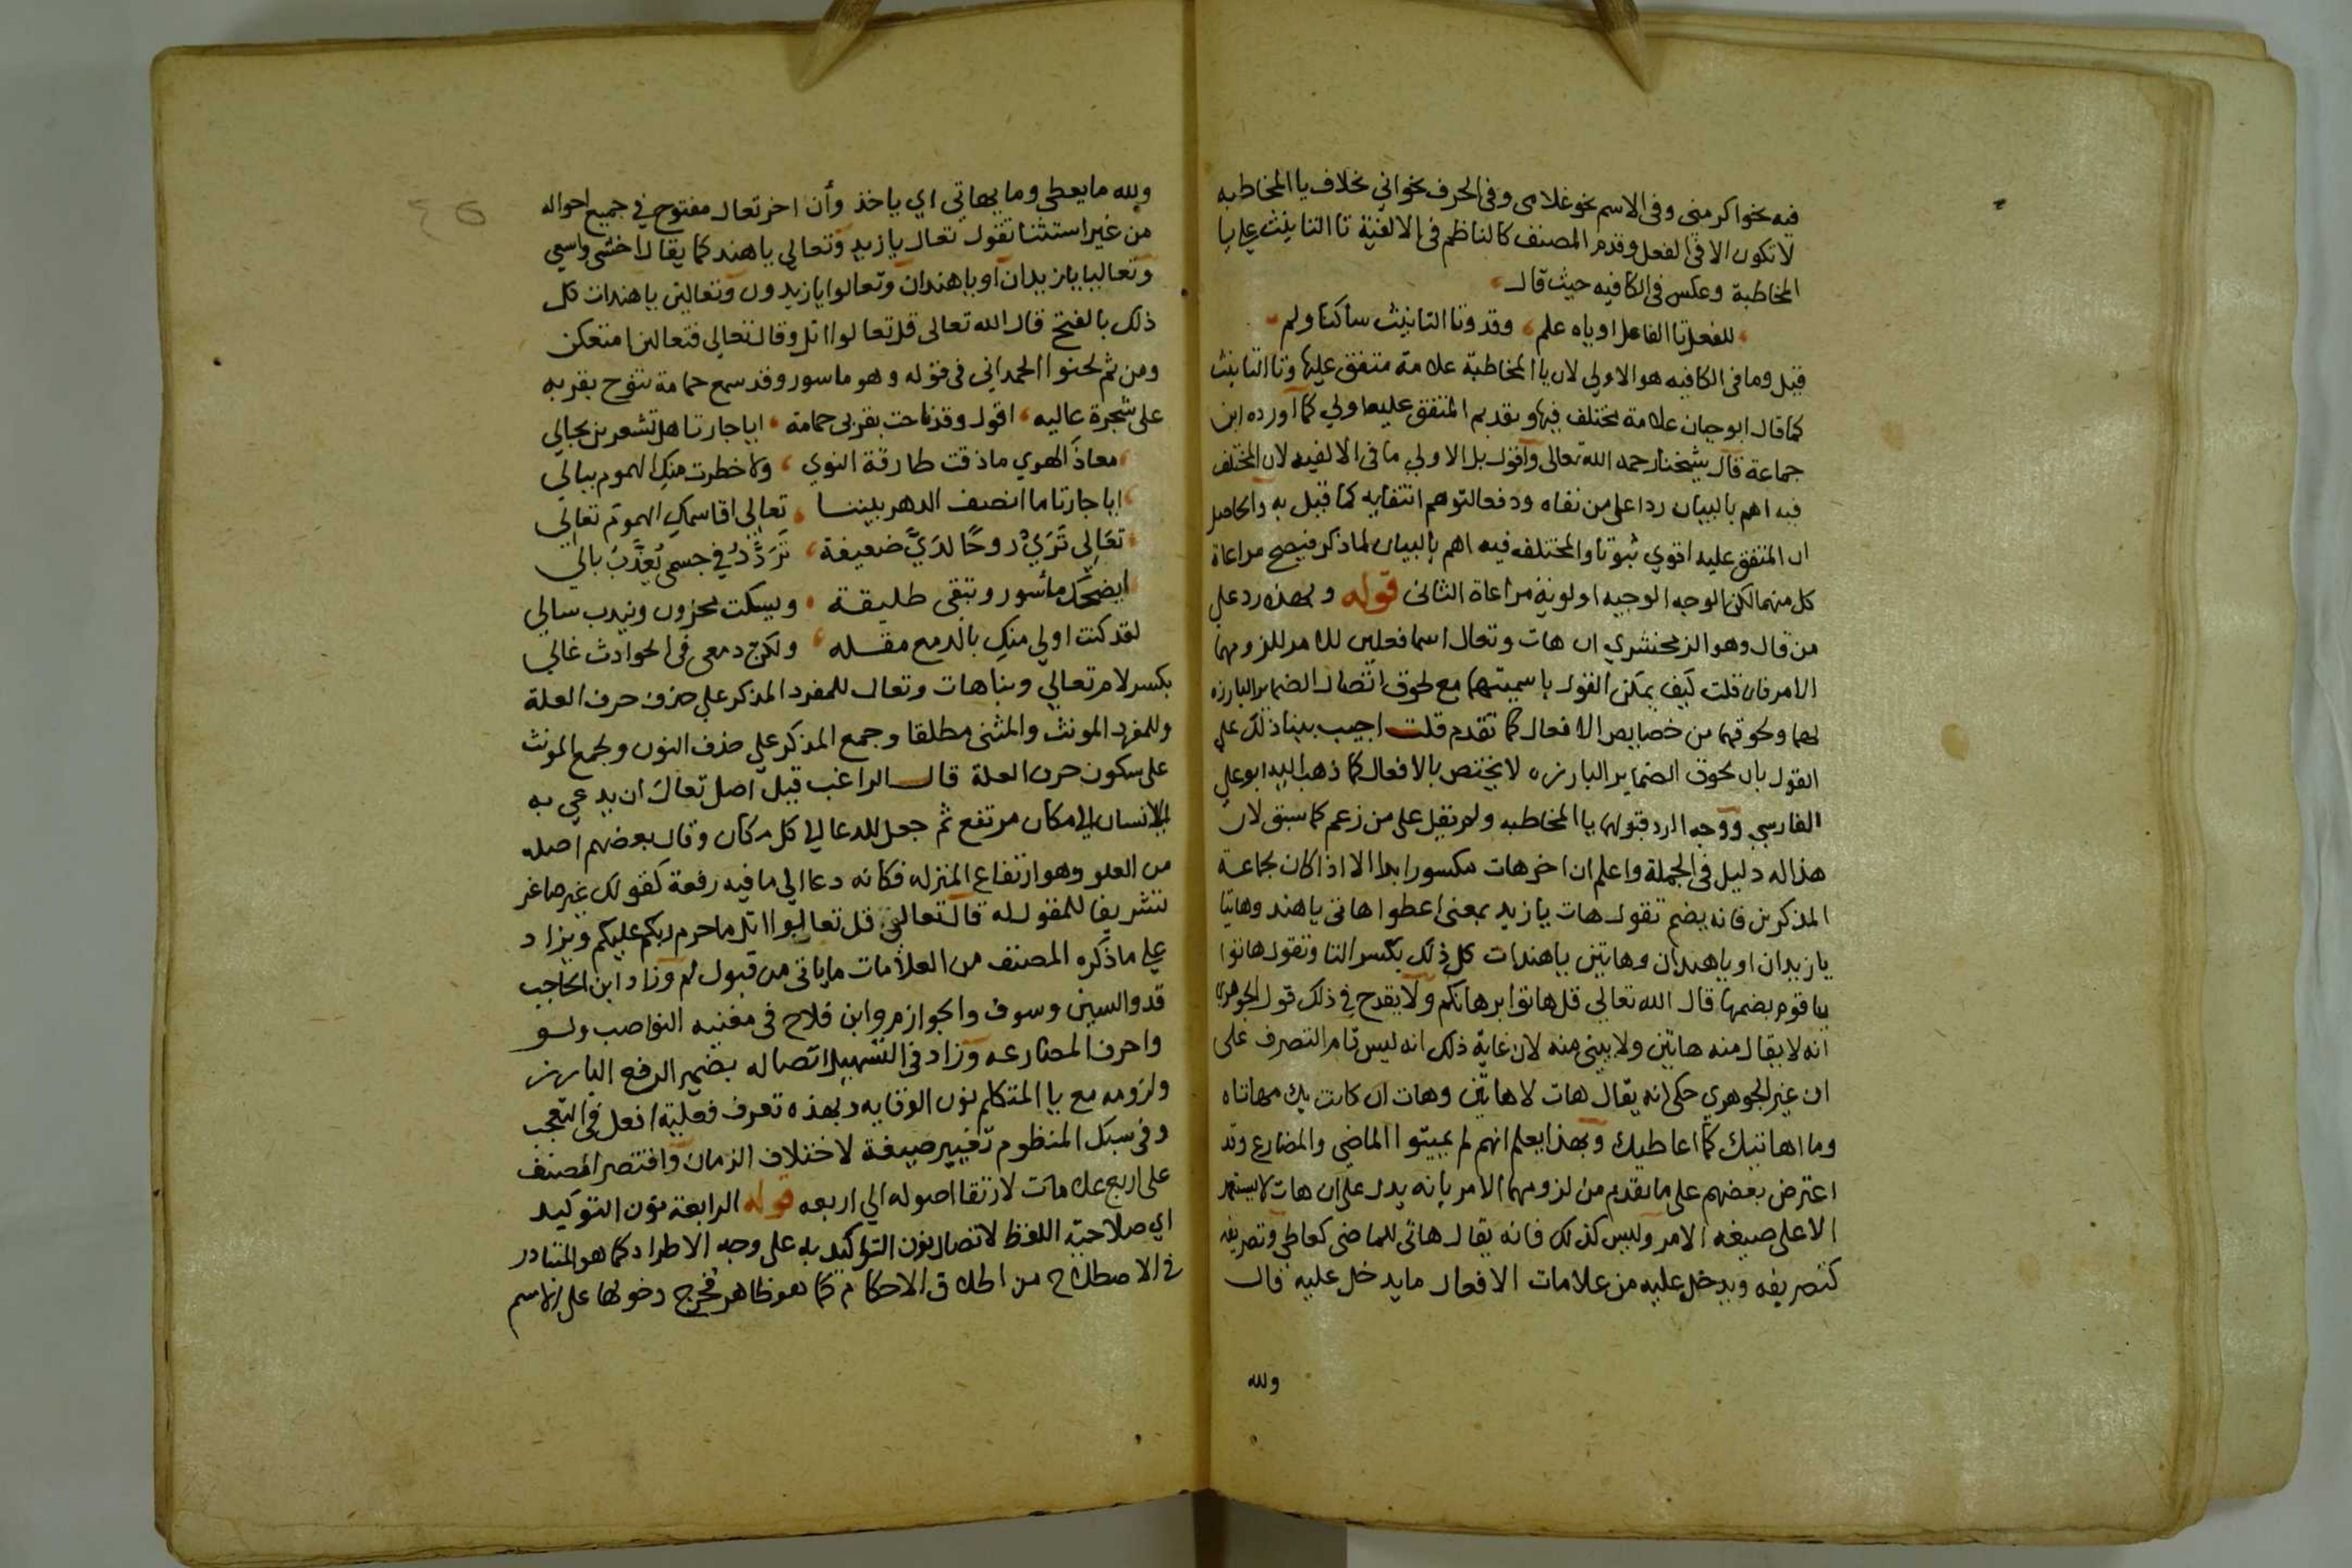 فيه نحو اكرمني وفى الاسم نحو غلامى وفى الحرف نحو اني بخلاف يا المخاطبه
لا تكون الا فى الفعل وقدم المصنف كالناظم فى الالفية تا التانيث على يا
المخاطبة وعكس فى الكافيه حيث قال
للفعل تا الفاعل او ياه علم وقد وتا التانيث ساكنا ولم
قيل وما فى الكافيه هو الاولي لان يا المخاطبة علامة متفق عليها وتا التانيث
كما قال ابو حيان علامة مختلف فيها وتقديم المتفق عليه اولي كما اورده ابن
جماعة قال شيخنا رحمه الله تعالى واقول بل الاولي ما فى الالفيه لان المختلف
فيه اهم بالبيان ردا على من نفاه ودفعا لتوهم انتفايه كما قيل به والحاصل
ان المتفق عليه اقوي ثبوتا والمختلف فيه اهم بالبيان لما ذكر فيصح مراعاة
كل منهما لكن الوجه الوجيه اولوية مراعاة الثانى قوله وبهذه رد على
من قال وهو الزمخشري ان هات وتعال اسما فعلين للامر للزومهما
الامر فان قلت كيف يمكن القول باسميتهما مع لحوق اتصال الضماير البارزه
لهما ولحوقها من خصايص الافعال كما تقدم قلت اجيب ببنا ذلك على
القول بان لحوق الضماير البارزه لا يختص بالافعال كما ذهب اليه ابو علي
الفارسي ووجه الرد قبولهما يا المخاطبه ولم نقل على من زعم كما سبق لان
هذا له دليل فى الجملة واعلم ان اخر هات مكسور ابدا الا اذا كان لجماعة
المذكرين فانه يضم تقول هات يا زيد بمعنى اعطوا هاتى يا هند وهاتيا
يا زيدان او يا هندان وهاتين يا هندات كل ذلك بكسر التا وتقول هاتوا
يا قوم بضمها قال الله تعالي قل هاتوا برهانكم ولا يقدح في ذلك قول الجوهري
انه لا يقال منه هاتين ولا يبنى منه لان غاية ذلك انه ليس تام التصرف على
ان غير الجوهري حكى انه يقال هات لا هاتين وهات ان كانت بك مهاتاه
وما اهاتيك كما اعاطيك وبهذا يعلم انهم لم يميتوا الماضي والمضارع وقد
اعترض بعضهم على ما تقدم من لزومهما الامر بانه يدل على ان هات لا يستمر
الا على صيغه الامر وليس كذلك فانه يقال هاتى للماضى كعاطى وتصريفه
كتصريفه ويدخل عليه من علامات الافعال ما يدخل عليه قال
ولله
ولله ما يعطى وما يهاتي اي ياخذ وأن اخر تعال مفتوح في جميع احواله
من غير استثنا تقول تعال يا زيد وتعالي يا هند كما يقال اخشى واسعي
وتعاليا يا زيدان او يا هندان وتعالوا يا زيدون وتعالين يا هندات كل
ذلك بالفتح قال الله تعالى قل تعالوا اتل وقال تعالي فتعالين امتعكن
ومن ثم لحنوا الحمدانى فى قوله وهو ماسور وقد سمع حمامة تنوح بقربه
على شجرة عاليه اقول وقد ناحت بقربى حمامة ايا جارتا هل تشعرين بحالي
معاذ الهوي ما ذقت طارقة النوي ولا خطرت منك الهموم ببالي
ايا جارتا ما انصف الدهر بيننا تعالي اقاسمك الهموم تعالي
تعالي تري روحا لدي ضعيفة تردد في جسمى يعذب بالي
ايضحك مأسور وتبقى طليقة ويسكت محزون ويندب سالي
لقد كنت اولي منك بالدمع مقله ولكن دمعى فى الحوادث غالي
بكسر لام تعالي وبنا هات وتعال للمفرد المذكر علي حذف حرف العلة
وللمفرد المونث والمثنى مطلقا وجمع المذكر علي حذف النون ولجمع المونث
على سكون حرف العلة قال الراغب قيل اصل تعال ان يدعي به
الانسان الي مكان مرتفع ثم جعل للدعا الي كل مكان وقال بعضهم اصله
من العلو وهو ارتفاع المنزله فكانه دعا الي ما فيه رفعة كقولك غير صاغر
تشريفا للمقول له قال تعالي قل تعالوا اتل ما حرم ربكم عليكم ويزاد
علي ما ذكره المصنف من العلامات ما ياتى من قبول لم وزاد ابن الحاجب
قد والسين وسوف والجوازم وابن فلاح فى مغنيه النواصب ولو
واحرف المضارعه وزاد فى التسهيل اتصاله بضمير الرفع البارز
ولزومه مع يا المتكلم نون الوقايه وبهذه تعرف فعلية افعل فى التعجب
وفى سبك المنظوم تغيير صيغة لاختلاف الزمان واقتصر المصنف
على اربع علامات لارتقا اصوله الي اربعه قوله الرابعة نون التوكيد
اي صلاحية اللفظ لاتصال نون التوكيد به على وجه الاطراد كما هو المتبادر
في الاصطلاح من اطلاق الاحكام كما هو ظاهر فخرج دخولها على الاسم